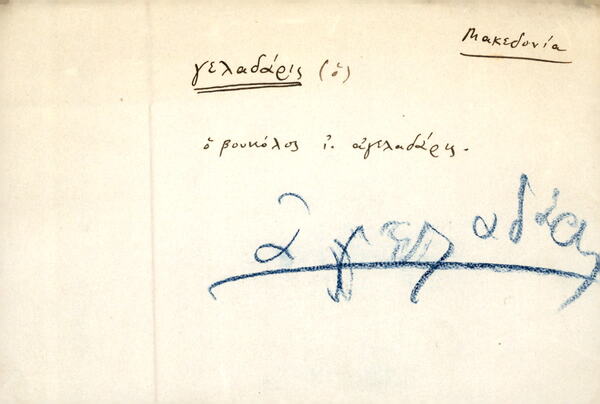 Μακεδονία
γελαδάρις (ὁ)
ὁ βουκόλος ἰ. ἀγελαδάρις.